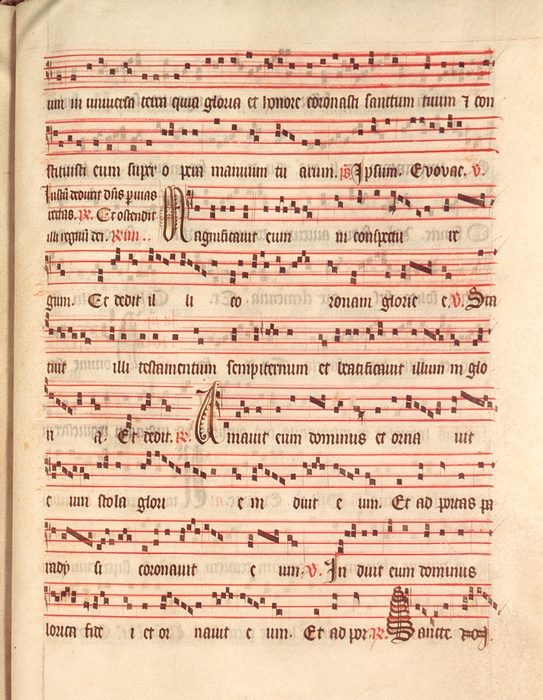 um in universa terra quia gloria et honore coronasti sanctum tuum ⁊ con
stituisti eum supr o pera manuum tu arum. ps Ipsum. Evovae. v.
Iustū deduxit dn̄s p vias
rectas. R. Et ostendit
illi regnū dei. Rm̄. Magnificavit eum in conspectu re
gum. Et dedit il li co ronam glorie e. v. Sta
tuit illi testamentum sempiternum et beatificavit illum in glo
ri a. Et dedit. R. Amavit eum dominus et orna vit
e um stola glori e in duit e um. Et ad portas pa
radẏ si coronavit e um. v. In duit eum dominus
lorica fide i et or navit e um. Et ad por R. Sancte